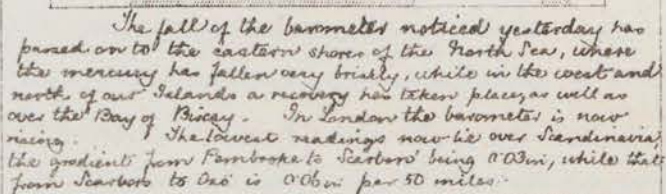 The fall of the barometer noticed yesterday has
passed on to the eastern shores of the North Sea, where
the mercury has fallen very briskly, while in the west and
north of our Islands a recovery has taken place, as well as
over the Bay of Biscay. In London the barometer is now
rising. The lowest readings now lie over Scandinavia,
the gradient from Pembroke to Scarboro' being 0.03in, while that
from Scarboro to Oxö is 0.06in per 50 miles.